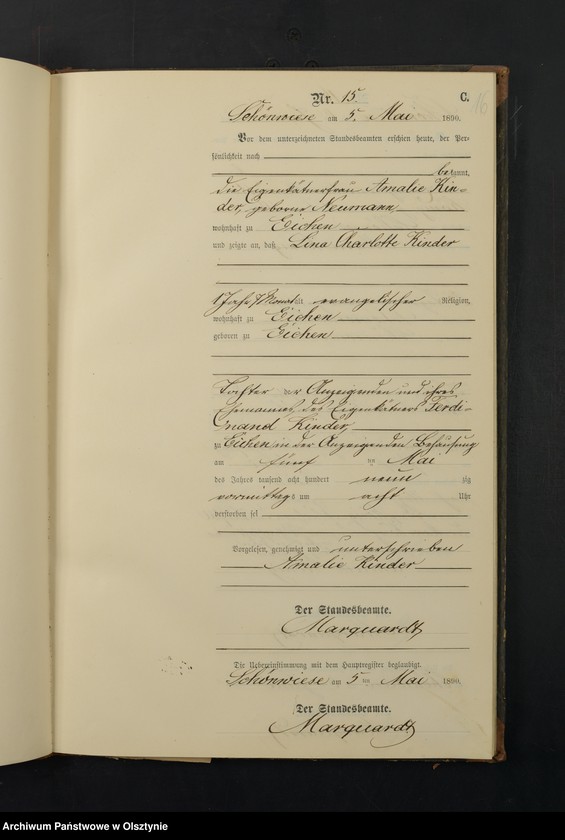 Nr. 15. C.
16
Schönwiese am 5. Mai 1890.
Vor dem unterzeichneten Standesbeamten erschien heute, der Per-
sönlichkeit nach
bekannt,
die Eigenkätnerfrau Amalie Kin-
der, geborne Neumann
wohnhaft zu Eichen
und zeigte an, daß Lina Charlotte Kinder
1 Jahr 7 Monat alt evangelischer Religion,
wohnhaft zu Eichen
geboren zu Eichen
Tochter der Anzeigenden und ihres
Ehemannes des Eigenkätners Ferdi-
nand Kinder,
zu Eichen in der Anzeigenden Behausung
am fünf ten Mai
des Jahres tausend acht hundert neun zig
vormittags um acht Uhr
verstorben sei
Vorgelesen, genehmigt und unterschrieben
Amalie Kinder
Der Standesbeamte.
Marquardt
Die Uebereinstimmung mit dem Hauptregister beglaubigt.
Schönwiese am 5 ten Mai 1890.
Der Standesbeamte.
Marquardt
Archiwum Państwowe w Olsztynie